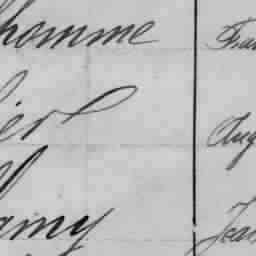 homme Fran
ier Aug
amy Jean